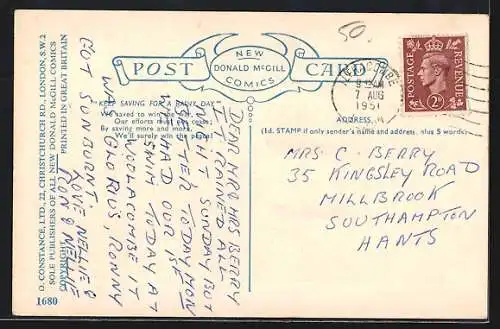 50.
NEW
DONALD McGILL
COMICS
POST CARD
"KEEP SAVING FOR A RAINY DAY"
We saved to win the war,
Our efforts must not cease:
By saving more and more,
We'll surely win the peace!
DEAR MR & MRS BERRY
IT RAINED ALL
NIGHT SUNDAY BUT
BETTER TODAY MON
WE HAD OUR 1ST
SWIM TODAY AT
WOOLACOMBE IT
WAS GLORIUS, RONNY
GOT SUNBURNT.
LOVE NELLIE &
RON & NELLIE
D. CONSTANCE, LTD., 22, CHRISTCHURCH RD., LONDON, S.W.2
SOLE PUBLISHERS OF ALL NEW DONALD McGILL COMICS
COPYRIGHT PRINTED IN GREAT BRITAIN
1680
7 AUG
1951
POSTAGE REVENUE
2D
ADDRESS.
(1d. STAMP if only sender's name and address, plus 5 words)
MRS C. BERRY
35 KINGSLEY ROAD
MILLBROOK
SOUTHAMPTON
HANTS